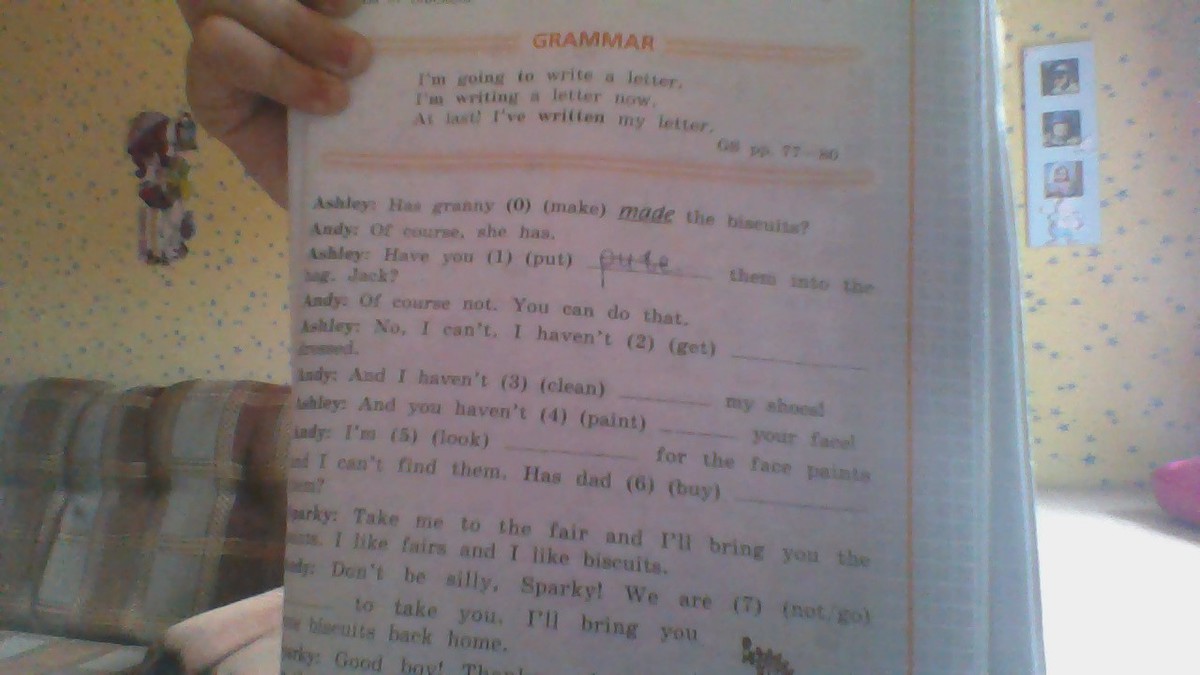 GRAMMAR
I'm going to write a letter.
I'm writing a letter now.
At last! I've written my letter.
GS pp. 77-80
Ashley: Has granny (0) (make) made the biscuits?
Andy: Of course, she has.
Ashley: Have you (1) (put) pute them into the
bag, Jack?
Andy: Of course not. You can do that.
Ashley: No, I can't. I haven't (2) (get) ________
dressed.
Andy: And I haven't (3) (clean) ________ my shoes!
Ashley: And you haven't (4) (paint) ________ your face!
Andy: I'm (5) (look) ________ for the face paints
and I can't find them. Has dad (6) (buy) ________
them?
Sparky: Take me to the fair and I'll bring you the
I like fairs and I like biscuits.
Andy: Don't be silly, Sparky! We are (7) (not/go)
________ to take you. I'll bring you
biscuits back home.
Sparky: Good boy!